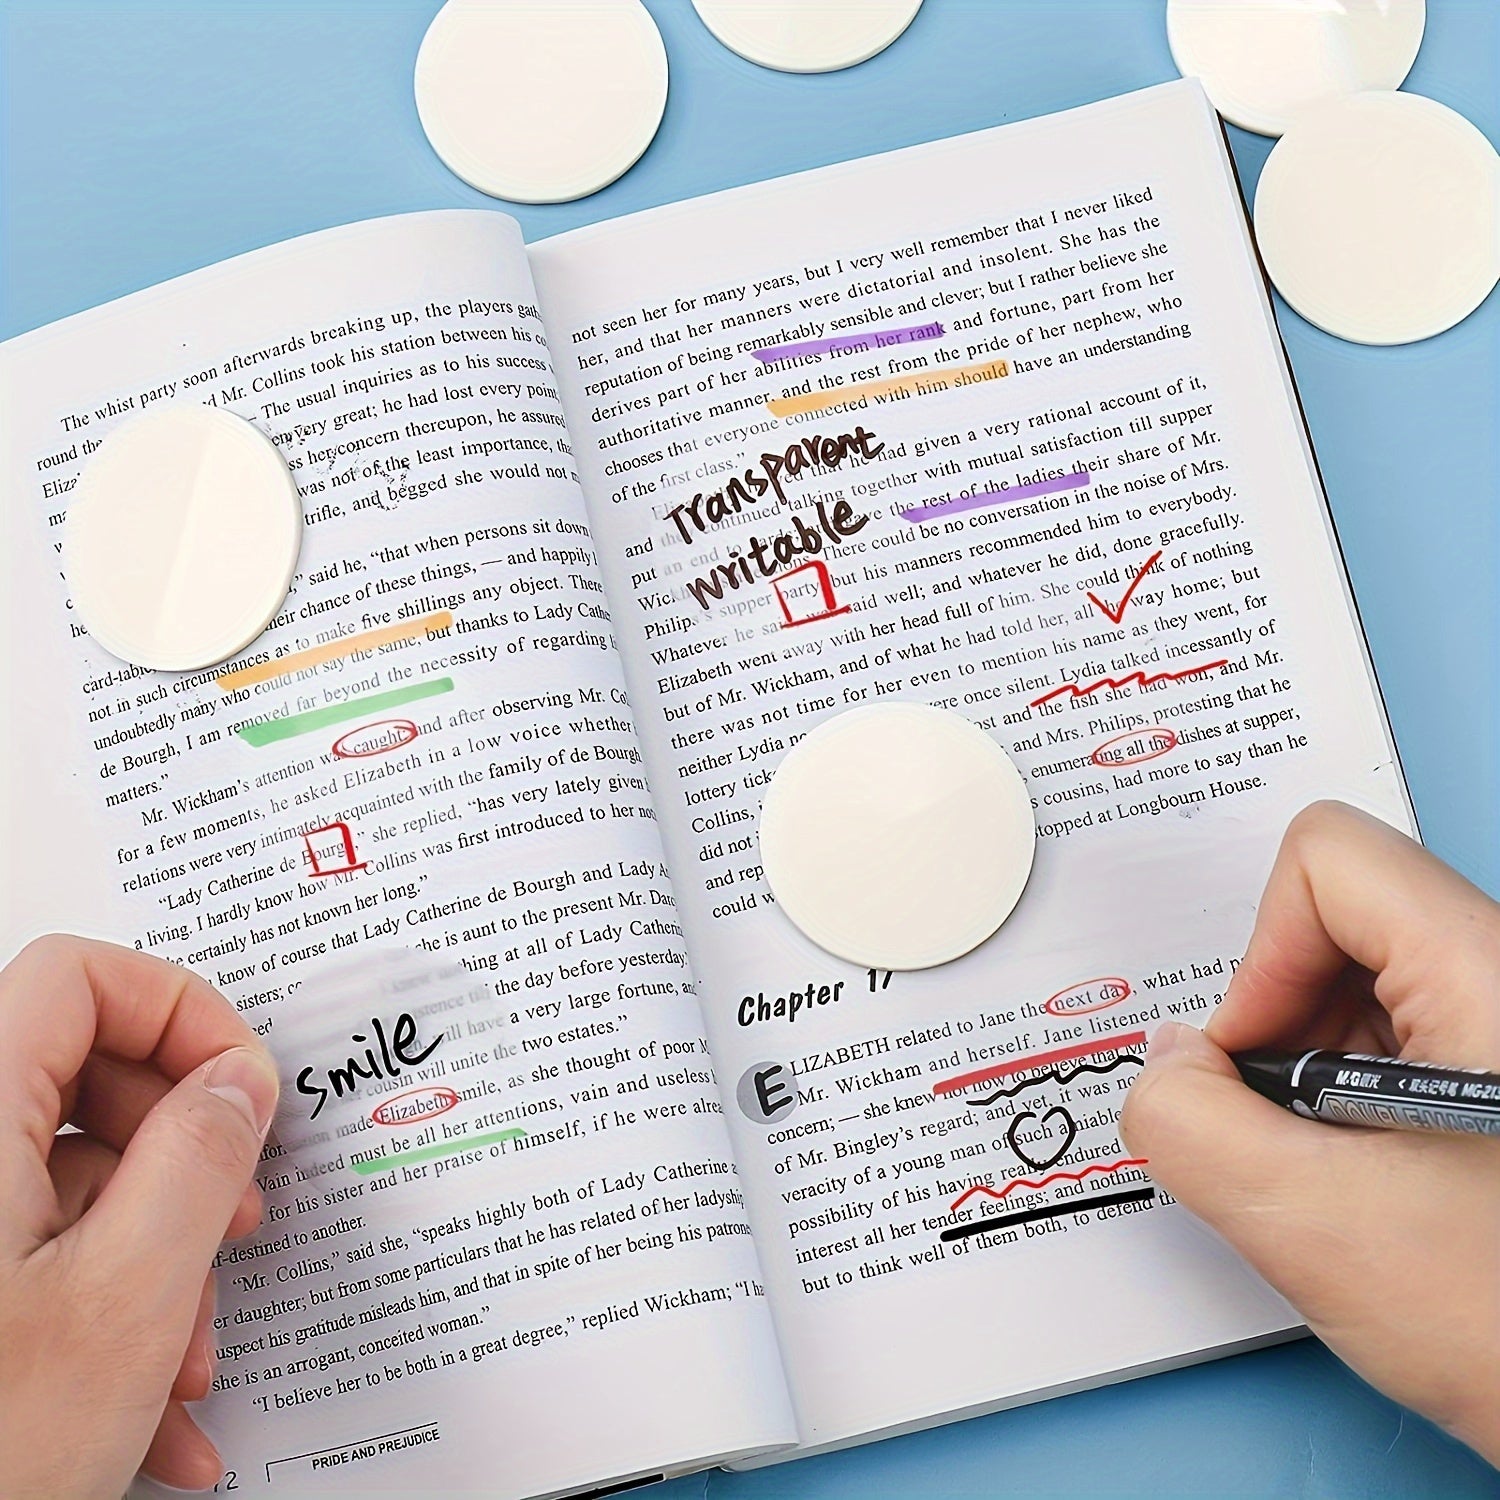 The whist party soon afterwards breaking up, the players
round the
Mr. Collins took his station between his
The usual inquiries as to his success
very great; he had lost every point
her concern thereupon, he assured
was not of the least importance,
trifle, and begged she would not
said he, “that when persons sit down
their chance of these things, — and happily
as to make five shillings any object. There
not in such circumstances
undoubtedly many who could not say the same, but thanks to Lady
de Bourgh, I am removed far beyond the necessity of regarding
matters.”
Mr. Wickham’s attention was caught and after observing Mr.
for a few moments, he asked Elizabeth in a low voice whether
relations were very intimately acquainted with the family of de Bourgh
“Lady Catherine de Bourgh,” she replied, “has very lately given
a living. I hardly know how Mr. Collins was first introduced to her
certainly has not known her long.”
know of course that Lady Catherine de Bourgh and Lady
sisters; she is aunt to the present Mr.
nothing at all of Lady
the day before yesterday.
will have a very large fortune,
cousin will unite the two estates.”
smile
made Elizabeth smile, as she thought of poor
Vain indeed must be all her attentions, vain and useless
for his sister and her praise of himself, if he were
destined to another.
“Mr. Collins,” said she, “speaks highly both of Lady Catherine
daughter; but from some particulars that he has related of her
his gratitude misleads him, and that in spite of her being his
she is an arrogant, conceited woman.”
“I believe her to be both in a great degree,” replied Wickham; “I
PRIDE AND PREJUDICE
not seen her for many years, but I very well remember that I never liked
her, and that her manners were dictatorial and insolent. She has the
reputation of being remarkably sensible and clever; but I rather believe she
derives part of her abilities from her rank and fortune, part from her
authoritative manner, and the rest from the pride of her nephew, who
chooses that everyone connected with him should have an understanding
of the first class.”
Transparent
writable
that he had given a very rational account of it,
and continued talking together with mutual satisfaction till supper
put an end to gave the rest of the ladies their share of Mr.
There could be no conversation in the noise of Mrs.
Philips's supper party, but his manners recommended him to everybody.
Whatever he said was said well; and whatever he did, done gracefully.
Elizabeth went away with her head full of him. She could think of nothing
but of Mr. Wickham, and of what he had told her, all the way home; but
there was not time for her even to mention his name as they went, for
neither Lydia were once silent. Lydia talked incessantly of
lottery and the fish she had won, and Mr.
Collins, and Mrs. Philips, protesting that he
did not enumerating all the dishes at supper,
and cousins, had more to say than he
could stopped at Longbourn House.
Chapter 17
ELIZABETH related to Jane the next day, what had
Mr. Wickham and herself. Jane listened with
concern; — she knew not how to believe that Mr.
of Mr. Bingley’s regard; and yet, it was
veracity of a young man of such
possibility of his having really endured
interest all her tender feelings; and nothing
but to think well of them both, to defend
M&G
MG-213